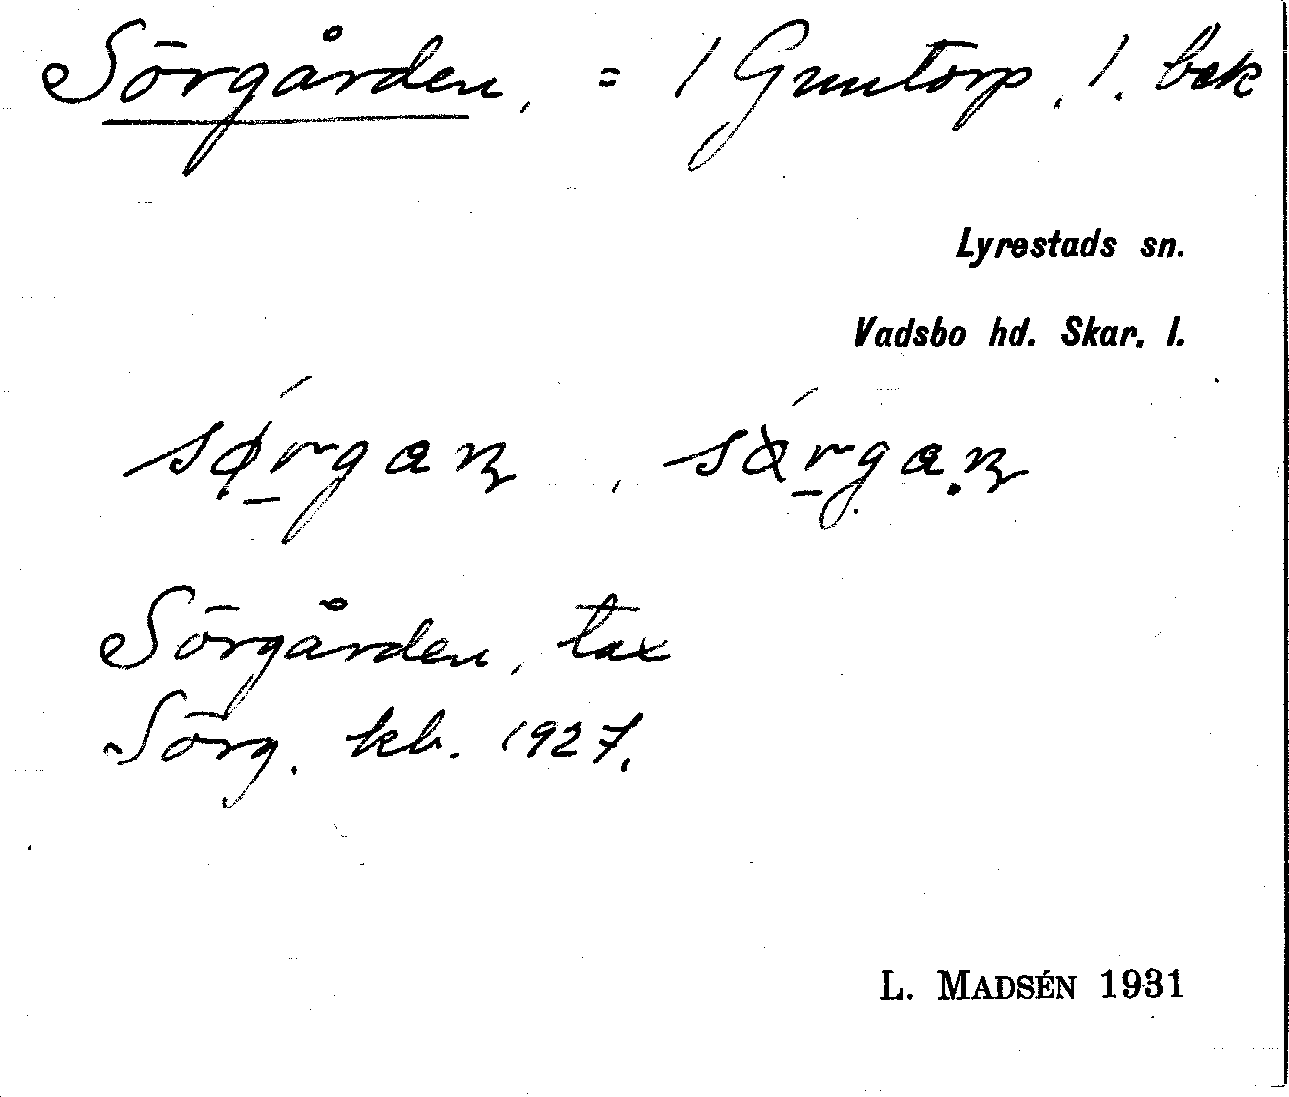 Sörgården, = 1 Guntorp, 1. bek
Lyrestads sn.
Vadsbo hd. Skar. l.
Sörgården, tax
Sörg. kb. 1927.
L. MADSÉN 1931